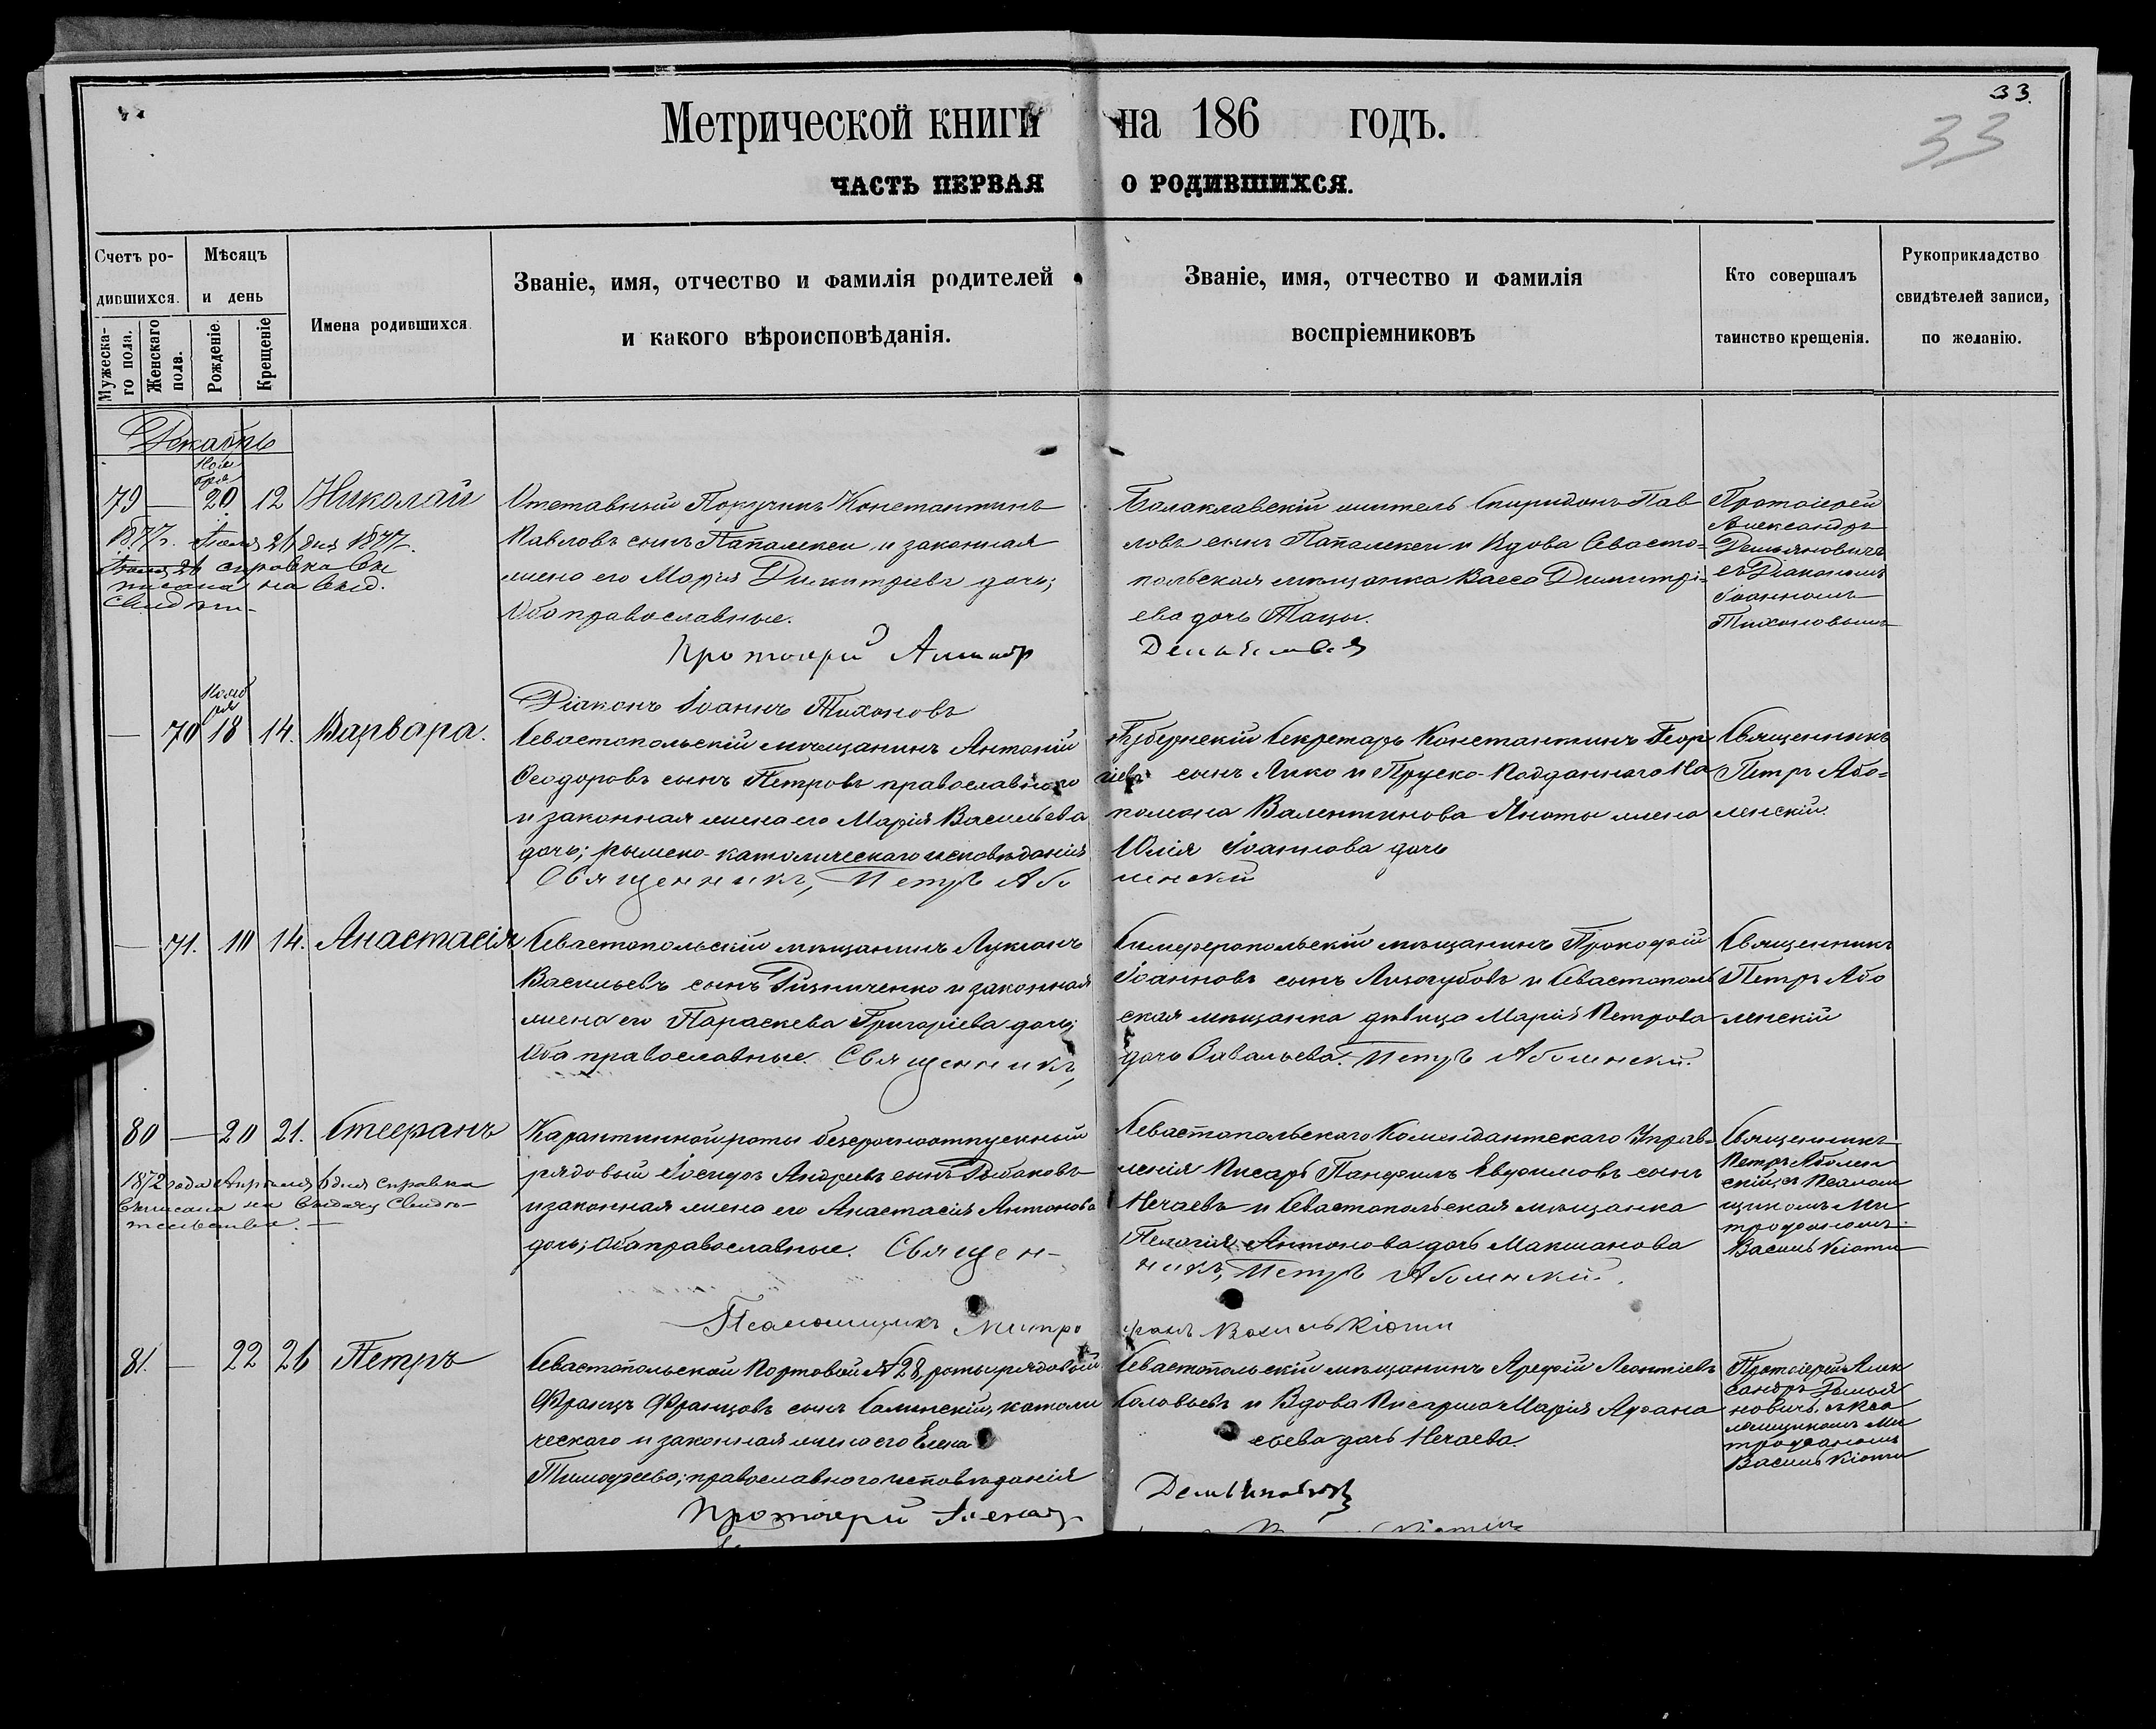 33.
33
Метрической книги на 186 годъ.
ЧАСТЬ ПЕРВАЯ О РОДИВШИХСЯ.
Счетъ ро-
дившихся.
Мужеска-
го пола.
Женскаго
пола.
Мѣсяцъ
и день
Рожденіе.
Крещеніе
Имена родившихся.
Званіе, имя, отчество и фамилія родителей
и какого вѣроисповѣданія.
Званіе, имя, отчество и фамилія
воспріемниковъ
Кто совершалъ
таинство крещенія.
Рукоприкладство
свидѣтелей записи,
по желанію.
Декабрь
Ноя
бря
79 — 20 12 Николай
1877 г. 26 дня 1877.
справка вы
писана на выд.
Отставный Поручикъ Константинъ
Павловъ сынъ Папалекси и законная
жена его Марія Димитріева дочь;
Оба православные.
Протоіерей
Балаклавскій житель Спиридонъ Пав
ловъ сынъ Папалекси и Вдова Севасто-
польская мѣщанка Васса Димитрі-
ева дочь Тацы.
Демьяновичъ
Протоіерей
Александръ
Демьяновичъ
съ Діакономъ
Іоанномъ
Тихоновымъ
Діаконъ Іоаннъ Тихоновъ
Нояб
ря
— 70 18 14. Варвара.
Севастопольскій мѣщанинъ Антоній
Ѳеодоровъ сынъ Петровъ православнаго
и законная жена его Марія Васильева
дочь; римско-католическаго исповѣданія
Священникъ, Петръ Або
Губернскій Секретарь Константинъ Геор
гіевъ сынъ Лико и Пруско-Подданнаго
Валентинова жена
Юлія Іоаннова дочь
ленскій
Священникъ
Петръ Або-
ленскій.
— 71. 10 14. Анастасія
Севастопольскій мѣщанинъ Лукіанъ
Васильевъ сынъ Ризниченко и законная
жена его Параскева Григоріева дочь;
Оба православные. Священникъ,
Симферопольскій мѣщанинъ Прокофій
Іоанновъ сынъ Лизогубовъ и Севастополь
ская мѣщанка дѣвица Марія Петрова
дочь Савальева. Петръ Аболенскій.
Священникъ
Петръ Або
ленскій
80 — 20 21. Стефанъ
1872 года Апрѣля 6 дня справка
выписана на выдачу Свидѣ-
тельства. —
Карантинной роты безсрочноотпускный
рядовый Іосифъ Андреевъ сынъ Рыбаковъ
и законная жена его Анастасія Антонова
дочь; Оба православные. Священ-
Севастопольскаго Комендантскаго Управ-
ленія Писарь Панфилъ Евфимовъ сынъ
Нечаевъ и Севастопольская мѣщанка
Пелагія Антонова дочь Макшанова
никъ, Петръ Аболенскій.
Священникъ
Петръ Аболен
скій съ Псалом
щикомъ Ми
трофаномъ
Василькіоти
Псаломщикъ Митро фанъ Василькіоти
81. — 22 26 Петръ
Севастопольской Портовой № 28, роты рядовой
Францъ Францовъ сынъ Салинскій, католи
ческаго и законная жена его Елена
Тимофеева; православного исповѣданія
Протоіерей
Севастопольскій мѣщанинъ Арефій Леонтіевъ
Соловьевъ и Вдова Писарша Марія Афана
сьева дочь Нечаева.
Демьяновичъ
Протоіерей Алек
сандръ Демья
новичъ съ Пса
ломщикомъ Ми
трофаномъ
Василькіоти